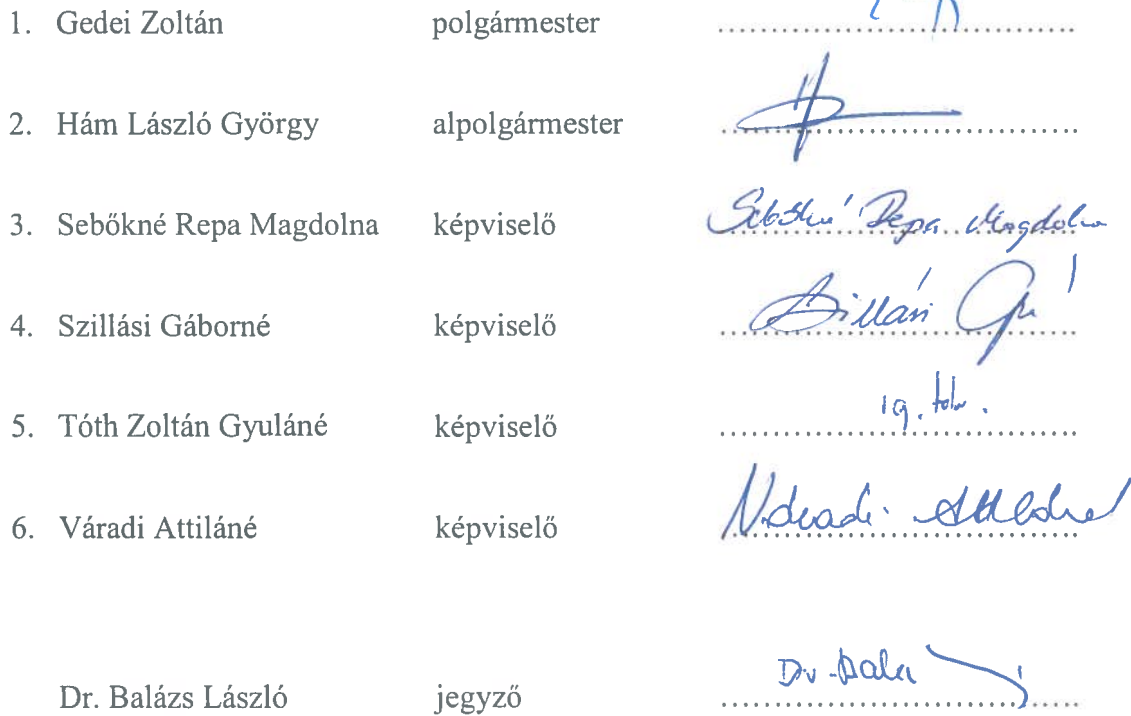 1. Gedei Zoltán polgármester ....................
2. Hám László György alpolgármester ....................
3. Sebőkné Repa Magdolna képviselő Sebőkné Repa Magdolna
4. Szillási Gáborné képviselő Szillási
5. Tóth Zoltán Gyuláné képviselő ig. táv.
6. Váradi Attiláné képviselő Váradi Attiláné
Dr. Balázs László jegyző Dr. Bala